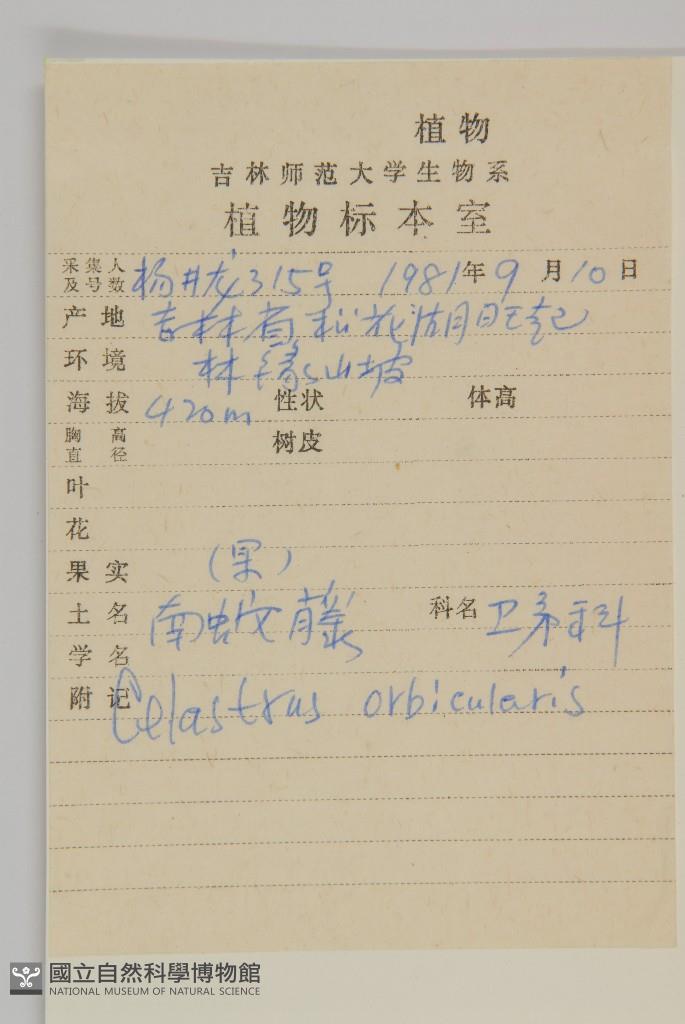 植物
吉林师范大学生物系
植物标本室
采集人及号数 杨井龙315号 1981年9月10日
产地 吉林省松花湖旺起
环境 林缘山坡
海拔 420m 性状 体高
胸高直径 树皮
叶
花
果实 (果)
土名 南蛇藤 科名 卫矛科
学名
附记 Celastrus orbicularis
國立自然科學博物館
NATIONAL MUSEUM OF NATURAL SCIENCE